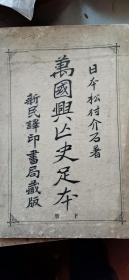 日本松村介石著
萬國興亡史足本
下册
新民譯印書局藏版